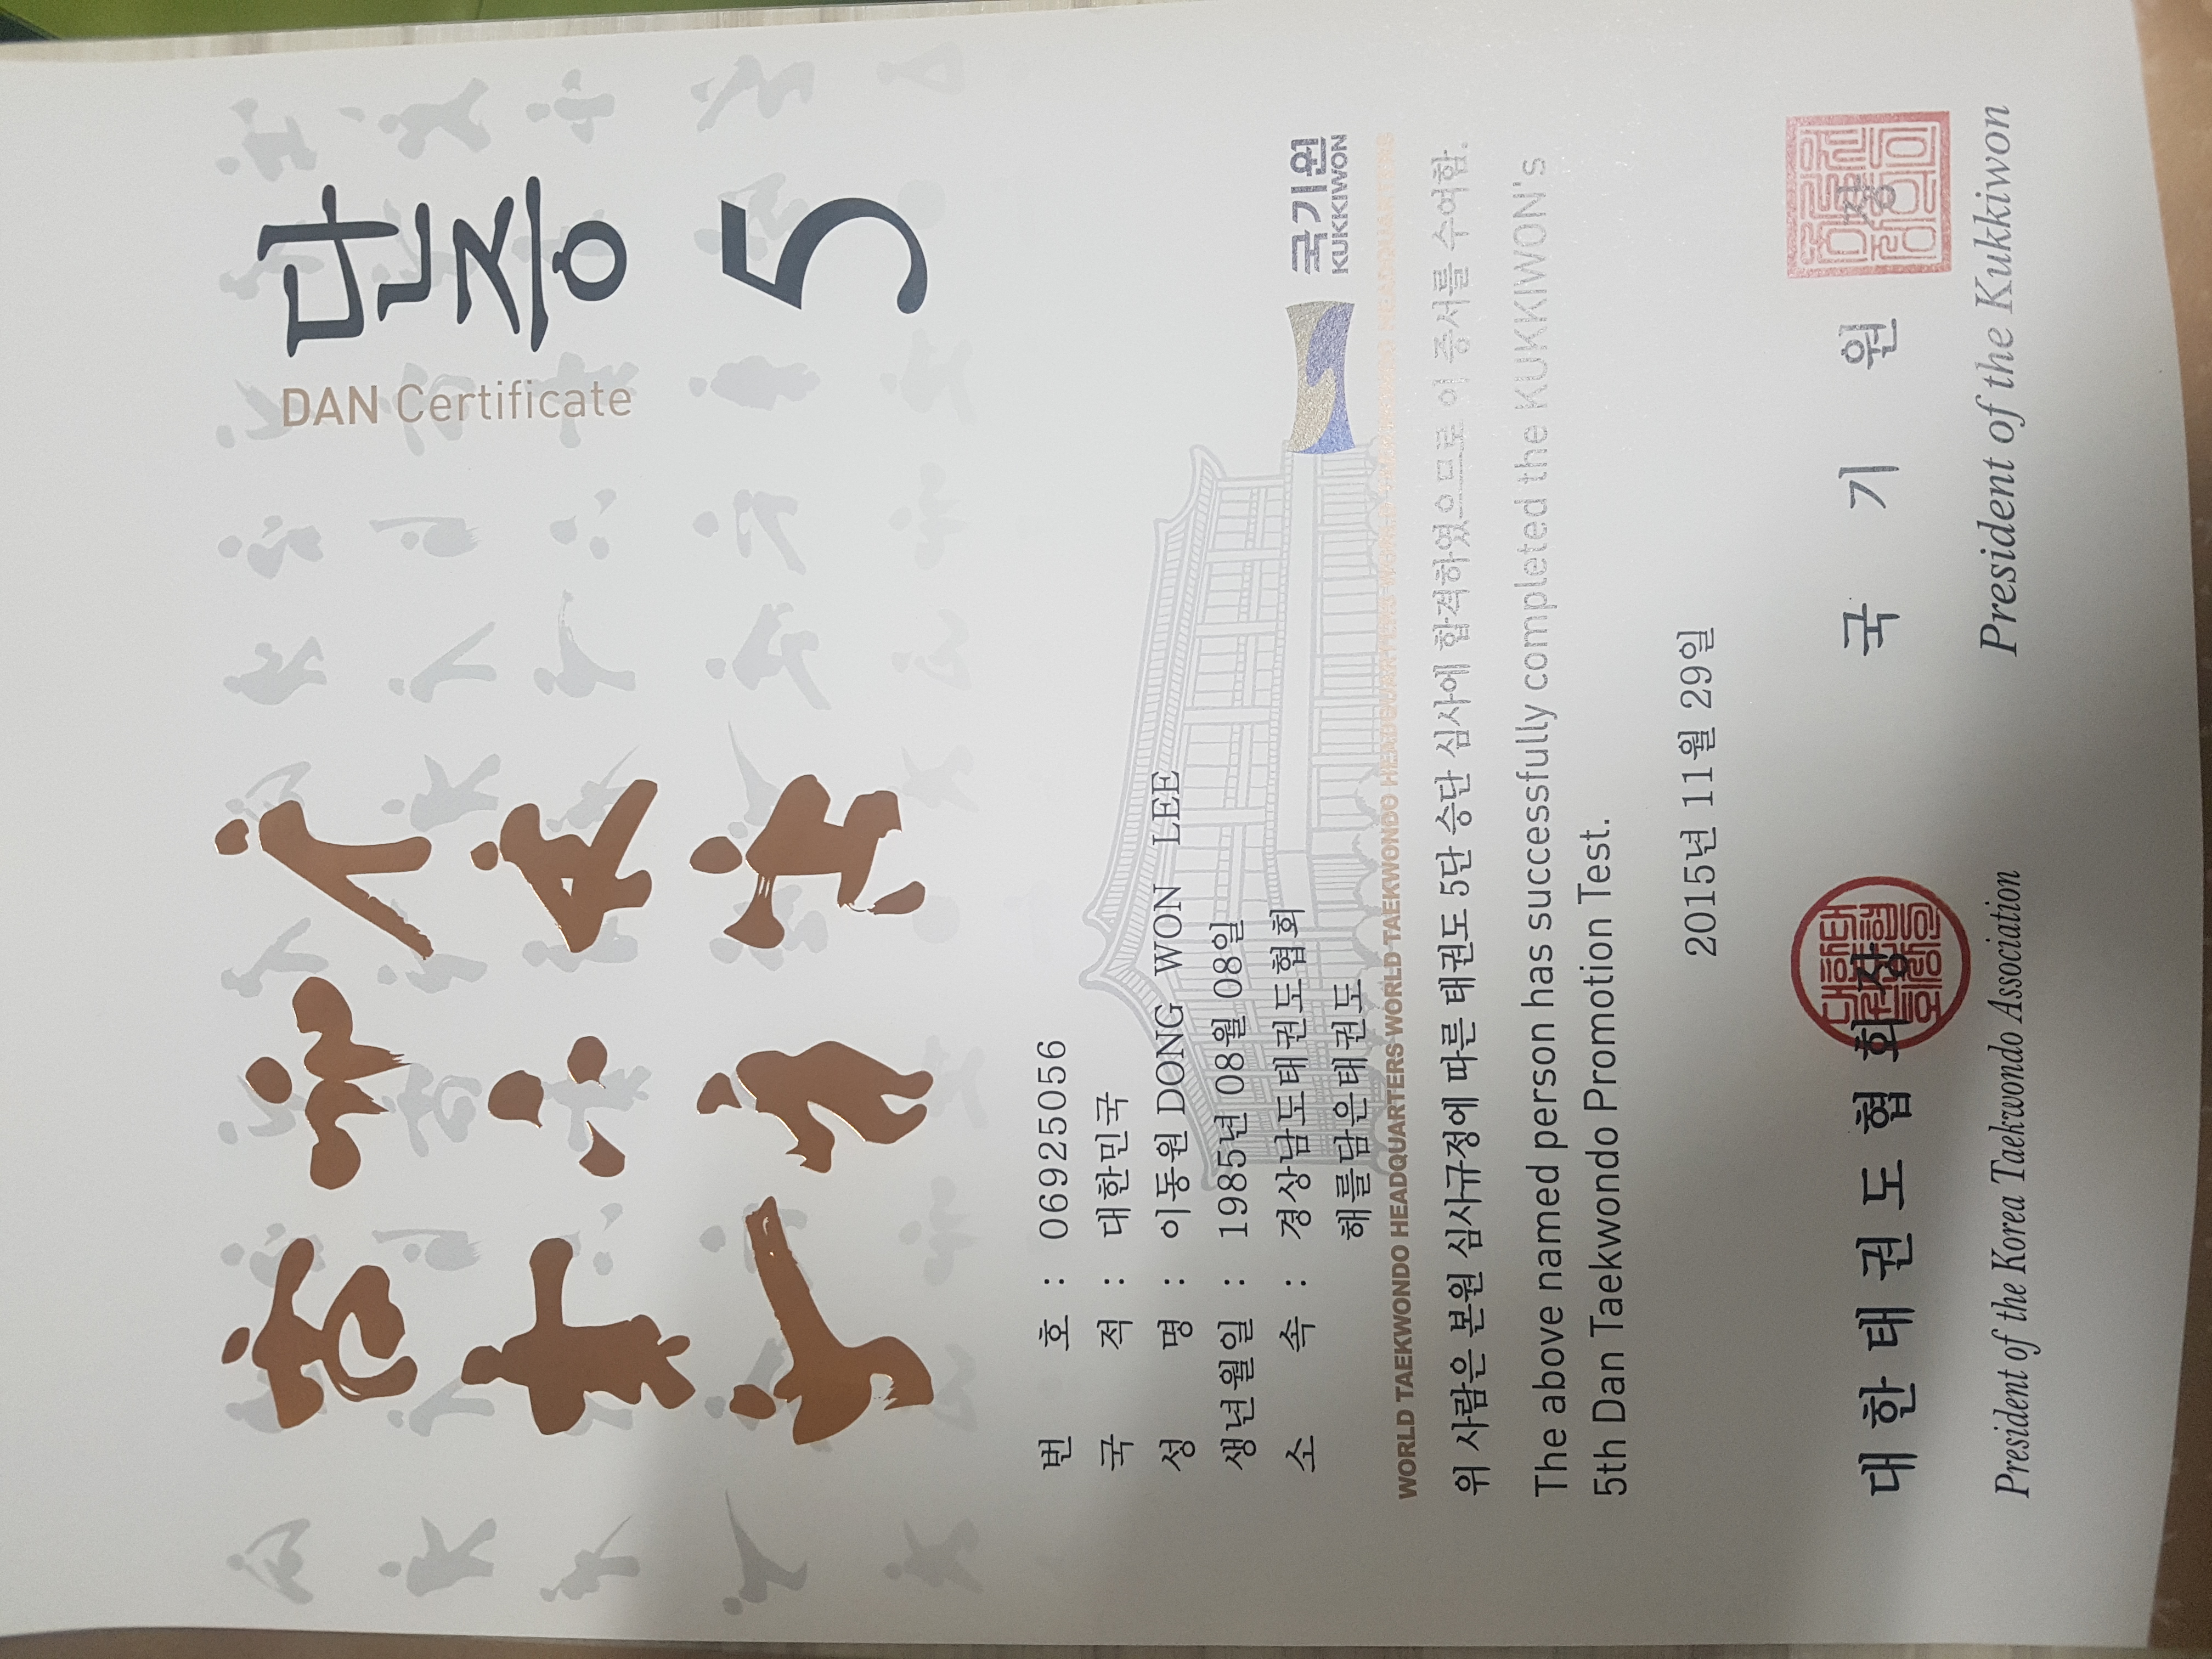 단증
DAN Certificate
5
번 호 : 06925056
국 적 : 대한민국
성 명 : 이동원 DONG WON LEE
생년월일 : 1985년 08월 08일
소 속 : 경상남도태권도협회
해를담은태권도
국기원
KUKKIWON
WORLD TAEKWONDO HEADQUARTERS WORLD TAEKWONDO HEADQUARTERS WORLD TAEKWONDO HEADQUARTERS
위 사람은 본원 심사규정에 따른 태권도 5단 승단 심사에 합격하였으므로 이 증서를 수여함.
The above named person has successfully completed the KUKKIWON's
5th Dan Taekwondo Promotion Test.
2015년 11월 29일
대한태권도협회장
President of the Korea Taekwondo Association
국 기 원 장
President of the Kukkiwon